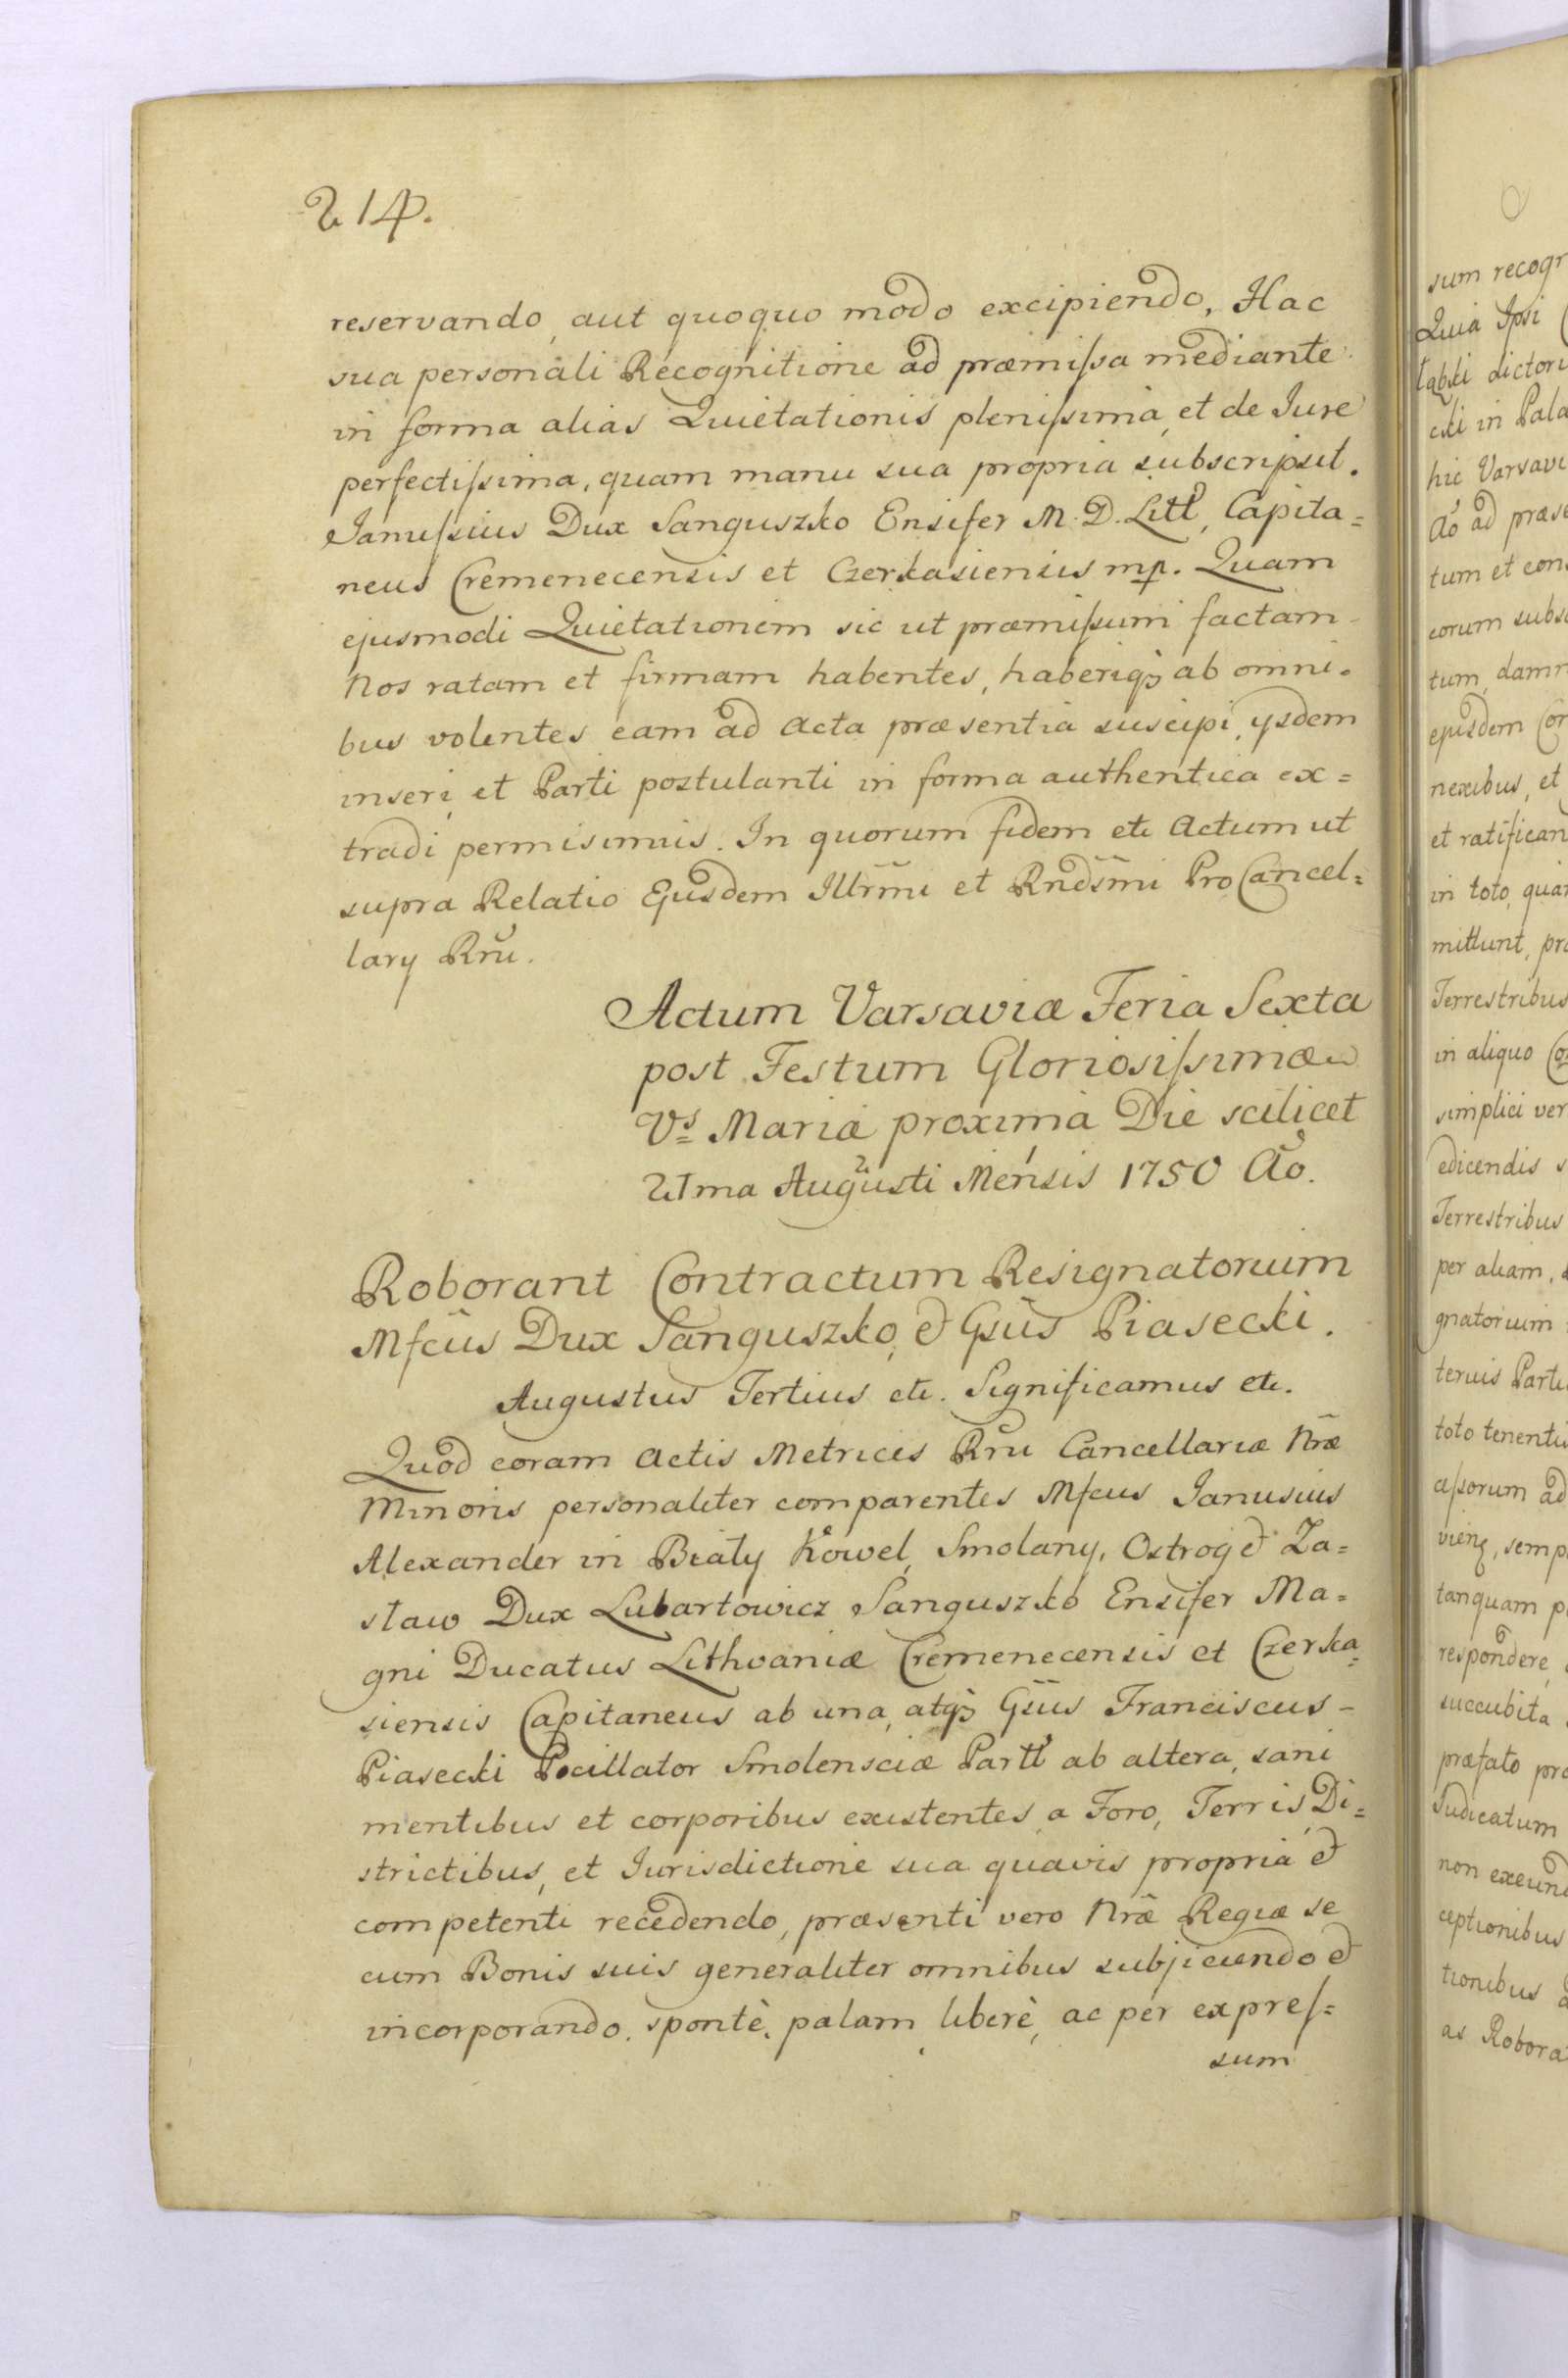 214.
reservando, aut quoquo modo excipiendo, Hac
sua personali Recognitione ad præmissa mediante
in forma alias Quietationis plenissima, et de Jure
perfectissima, quam manu sua propria subscripsit.
Janussius Dux Sanguszko Ensifer M. D. Litt, Capita=
neus Cremenecensis et Czerkasiensis mp. Quam
ejusmodi Quietationem sic ut præmissum factam
Nos ratam et firmam habentes, haberiq₃ ab omni=
bus volentes eam ad Acta præsentia suscipi, ysdem
inseri et Parti postulanti in forma authentica ex=
tradi permisimus. In quorum fidem etc Actum ut
supra Relatio Ejusdem Illr̃mi et Rnds̃mi ProCancel=
lary Rñu.
Actum Varsaviæ Feria Sexta
post Festum Gloriosissimæ
Vs Mariæ proxima Die scilicet
21ma Augusti Mensis 1750 Ao.
Roborant Contractum Resignatorium
Mfcus Dux Sanguszko, & Gsũs Piasecki.
Augustus Tertius etc. Significamus etc.
Quod coram Actis Metrices Rñu Cancellariæ Nræ
Minoris personaliter comparentes Mfcus Janusius
Alexander in Biały Kowel, Smolany, Ostrog & Za=
staw Dux Lubartowicz Sanguszko Ensifer Ma=
gni Ducatus Lithvaniæ Cremenecensis et Czerka=
siensis Capitaneus ab una, atq₃ Gsũs Franciscus
Piasecki Pocillator Smolensciæ Partt ab altera, sani
mentibus et corporibus existentes, a Foro, Terris, Di=
strictibus, et Jurisdictione sua quavis propria &
competenti recedendo, præsenti vero Nræ Regiæ se
cum Bonis suis generaliter omnibus subjiciendo &
incorporando, spontè, palam liberè, ac per expres=
sum
sum recogr
Quia Ipsi
dictoru
cki in Pala
hic Varsavi
Ao ad præse
tum et con
eorum subsc
tum, damn
ejusdem Con
nexibus, et
et ratifican
in toto, quam
mittunt, pro
Terrestribus
in aliquo Co
simplici ver
edicendis s
Terrestribus
per aliam,
gnatorium
teruis Parti
toto tenentu
assorum ad
semp
tanquam p
respondere,
succubita
præfato pro
Judicatum
non exeund
ceptionibus
tionibus
as Robora